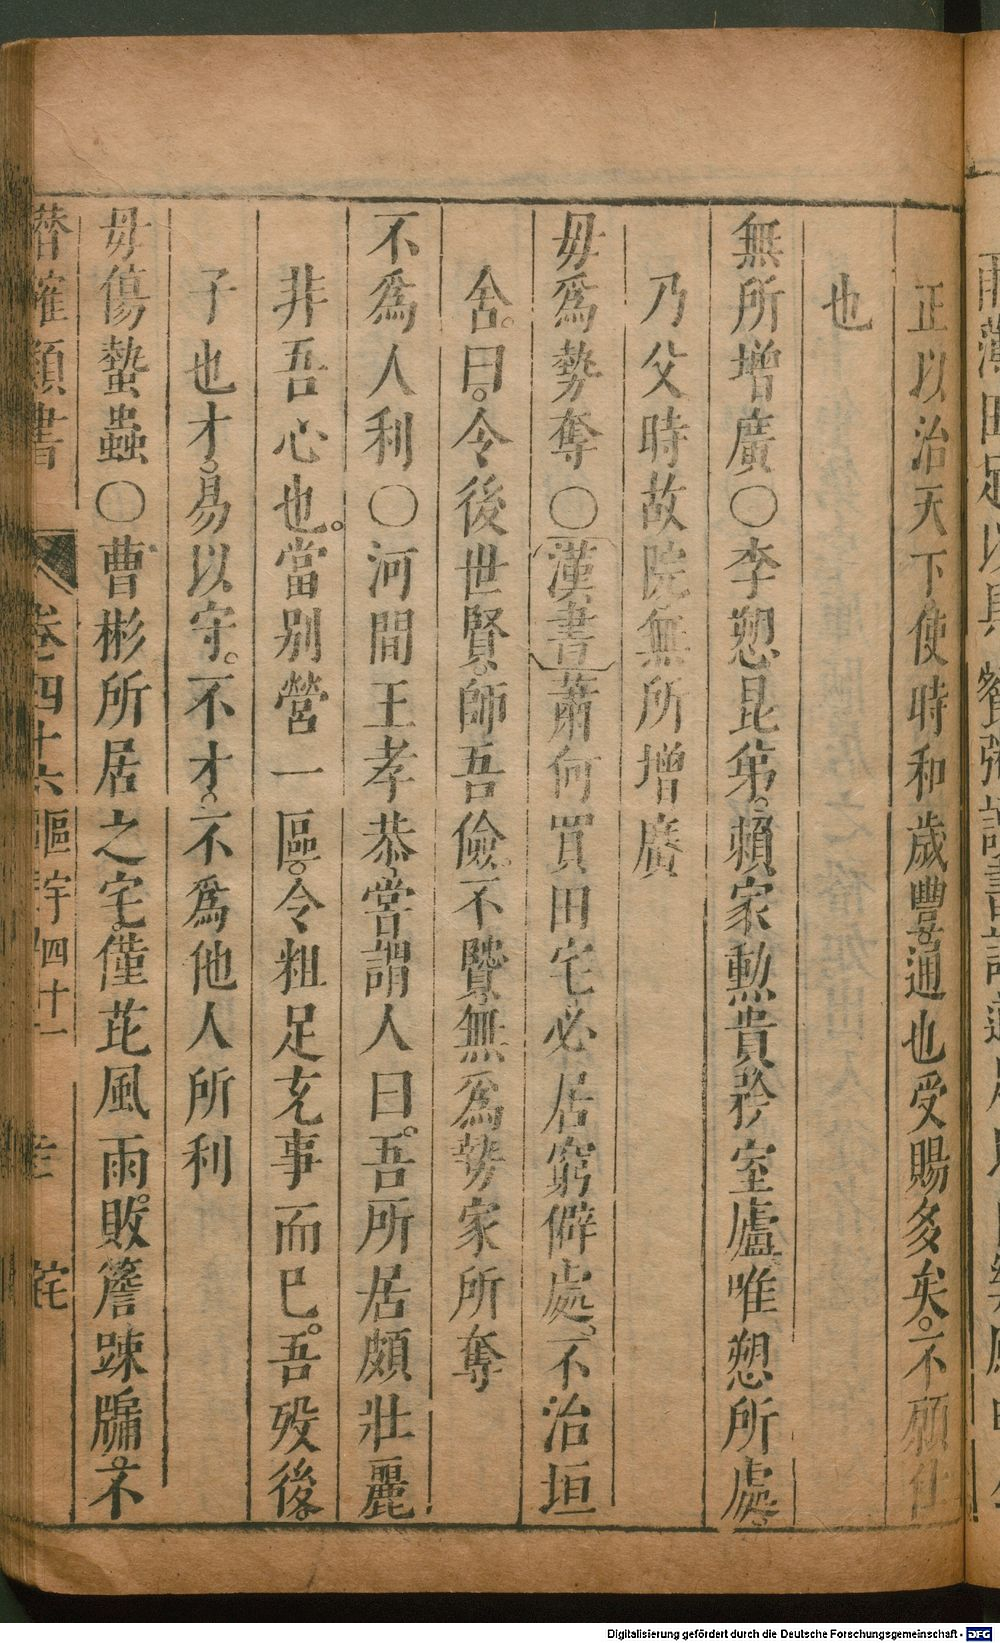 正以治天下使時和歲豐通也受賜多矣不願仕
也
無所增廣○李愬昆弟賴家勳貴矜室廬唯愬所處
乃父時故院無所增廣
毋爲勢奪○漢書蕭何買田宅必居窮僻處不治垣
舍曰令後世賢師吾儉不賢無爲勢家所奪
不爲人利○河間王孝恭嘗謂人曰吾所居頗壯麗
非吾心也當別營一區令粗足充事而已吾歿後
子也才易以守不才不爲他人所利
毋傷蟄蟲○曹彬所居之宅僅芘風雨敗簷踈牖不
潛確類書 卷四十六 區宇四十一
Digitalisierung gefördert durch die Deutsche Forschungsgemeinschaft - DFG